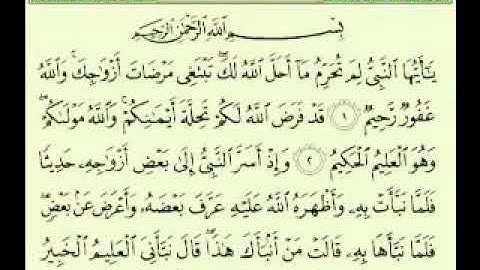 بِسْمِ ٱللَّهِ ٱلرَّحْمَٰنِ ٱلرَّحِيمِ
يَـٰٓأَيُّهَا ٱلنَّبِىُّ لِمَ تُحَرِّمُ مَآ أَحَلَّ ٱللَّهُ لَكَ ۖ تَبْتَغِى مَرْضَاتَ أَزْوَٰجِكَ ۚ وَٱللَّهُ
غَفُورٌ رَّحِيمٌ ١ قَدْ فَرَضَ ٱللَّهُ لَكُمْ تَحِلَّةَ أَيْمَـٰنِكُمْ ۚ وَٱللَّهُ مَوْلَىٰكُمْ ۖ
وَهُوَ ٱلْعَلِيمُ ٱلْحَكِيمُ ٢ وَإِذْ أَسَرَّ ٱلنَّبِىُّ إِلَىٰ بَعْضِ أَزْوَٰجِهِۦ حَدِيثًا
فَلَمَّا نَبَّأَتْ بِهِۦ وَأَظْهَرَهُ ٱللَّهُ عَلَيْهِ عَرَّفَ بَعْضَهُۥ وَأَعْرَضَ عَنۢ بَعْضٍ ۖ
فَلَمَّا نَبَّأَهَا بِهِۦ قَالَتْ مَنْ أَنۢبَأَكَ هَـٰذَا ۖ قَالَ نَبَّأَنِىَ ٱلْعَلِيمُ ٱلْخَبِيرُ